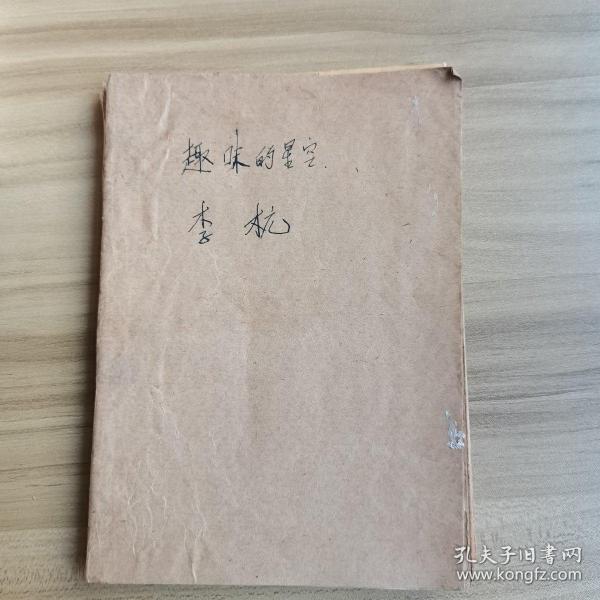 趣味的星空
李杭
孔夫子旧書网
www.kongfz.com